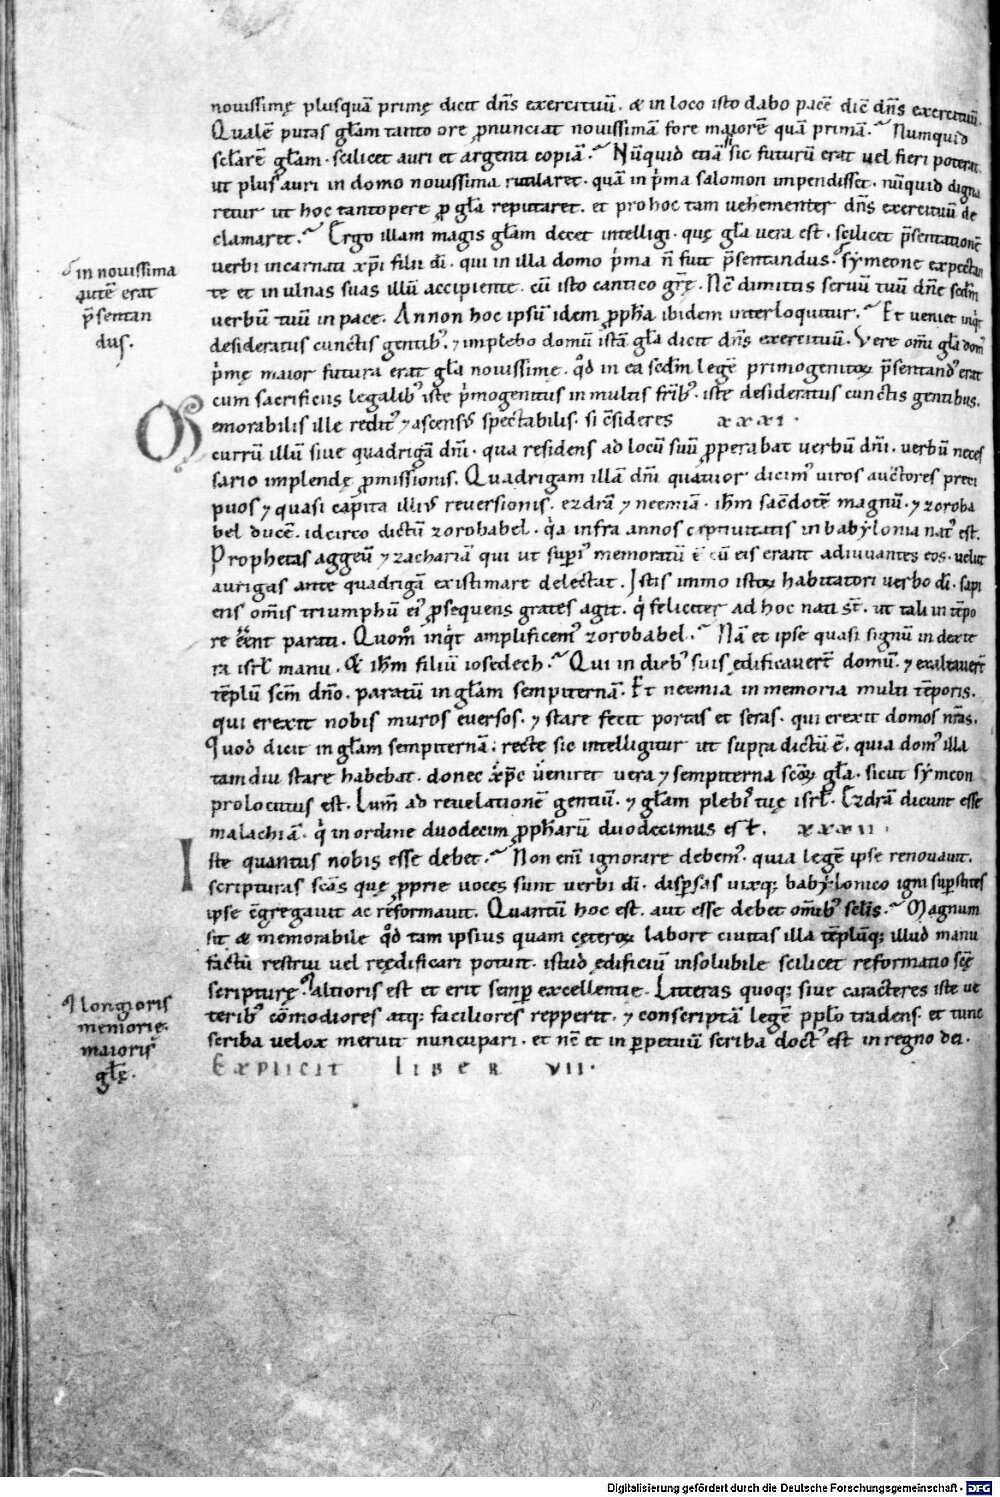 nouissimę plusquā primę dicit dn̄s exercituū. & in loco isto dabo pacē dic̄ dn̄s exercituū.
Qualē putas gl̄am tanto ore ꝓnunciat nouissimā fore maiorē quā primā. Numquid
sc̄larē gl̄am. scilicet auri et argenti copiā. Nūquid etiā sic futurū erat uel fieri poterat,
ut plus auri in domo nouissima rutilaret. quā in p̄ma salomon impendisset. nūquid digna
retur ut hoc tantopere ꝓ gl̄a reputaret. et pro hoc tam uehementer dn̄s exercituū de
clamaret. Ergo illam magis gl̄am decet intelligi. quę gl̄a uera est. scilicet p̄sentationē
uerbi incarnati xp̄i filii dī. qui in illa domo p̄ma n̄ fuit p̄sentandus. sẏmeone expectan
te et in ulnas suas illū accipiente. cū isto cantico gr̄ę. Nc̄ dimittis seruū tuū dn̄e scd̄m
uerbū tuū in pace. Annon hoc ipsū idem ꝓph̄a ibidem interloquitur. Et ueniet inq̇t
desideratus cunctis gentib᷒. ⁊ implebo domū istā gl̄a dicit dn̄s exercituū. Vere om̄i gl̄a dom᷒
p̄mę maior futura erat gl̄a nouissimę. qd̄ in ea scd̄m legē primogenitoꝝ p̄sentand᷒ erat
cum sacrificiis legalib᷒ iste p̄mogenitus in multis fr̄ib᷒. iste desideratus cunctis gentibus.
Memorabilis ille redit᷒ ⁊ ascens᷒ spectabilis. si c̄sideres xxxi.
currū illū siue quadrigā dn̄i. qua residens ad locū suū ꝓperabat uerbū dn̄i. uerbū neces
sario implendę ꝓmissionis. Quadrigam illā dn̄i quatuor dicim᷒ uiros auctores preci
puos ⁊ quasi capita illi᷒ reuersionis. ezdrā ⁊ neemiā. ih̄m sac̄dotē magnū. ⁊ zoroba
bel ducē. idcirco dictū zorobabel. q̇a infra annos captiuitatis in babẏlonia nat᷒ est.
Prophetas aggeū ⁊ zachariā qui ut supi᷒ memoratū ē cū eis erant adiuuantes eos. uelut
aurigas ante quadrigā existimare delectat. Istis immo istoꝝ habitatori uerbo dī. sapi
ens om̄is triumphū ei᷒ ꝓsequens grates agit. q̇ feliciter ad hoc nati st̄. ut tali in tēpo
re eēnt parati. Quom̄ inq̇t amplificem᷒ zorobabel. Nā et ipse quasi signū in dexte
ra isrl̄ manu. & ih̄m filiū iosedech. Qui in dieb᷒ suis ędificauer̄t domū. ⁊ exaltauer̄t
tēplū scm̄ dn̄o. paratū in gl̄am sempiternā. Et neemia in memoria multi tēporis.
qui erexit nobis muros euersos. ⁊ stare fecit portas et seras. qui erexit domos nr̄as.
Quod dicit in gl̄am sempiternā; recte sic intelligitur ut supra dictū ē. quia dom᷒ illa
tamdiu stare habebat. donec xp̄c ueniret uera ⁊ sempiterna scōꝝ gl̄a. sicut sẏmeon
prolocutus est. Lum̄ ad reuelationē gentiū. ⁊ gl̄am plebi᷒ tuę isrl̄. Ezdrā dicunt esse
malachiā. q̇ in ordine duodecim ꝓph̄arū duodecimus est. xxxii.
Iste quantus nobis esse debet. Non eni̅ ignorare debem᷒. quia legē ipse renouauit.
scripturas scās quę ꝓprie uoces sunt uerbi dī. disp̱sas uixq; babẏlonico igni sup̱stites
ipse c̄gregauit ac reformauit. Quantū hoc est. aut esse debet om̄ib᷒ sc̄lis. Magnum
sit & memorabile qd̄ tam ipsius quam cęteroꝝ labore ciuitas illa tēplūq; illud manu
factū restrui uel reędificari potuit. istud ędificiū insolubile scilicet reformatio sc̄ę
scripturę altioris est et erit semp̱ excellentie. Litteras quoq; siue caracteres iste ue
terib᷒ cōmodiores atq; faciliores repperit. ⁊ conscriptā legē pp̄lo tradens. et tunc
scriba uelox meruit nuncupari. et nc̄ et in p̱petuū scriba doct᷒ est in regno dei.
Explicit liber vii.
in nouissima
autē erat
p̄sentan
dus.
longioris
memorię.
maioris q̇
gl̄ę.
Digitalisierung gefördert durch die Deutsche Forschungsgemeinschaft - DFG